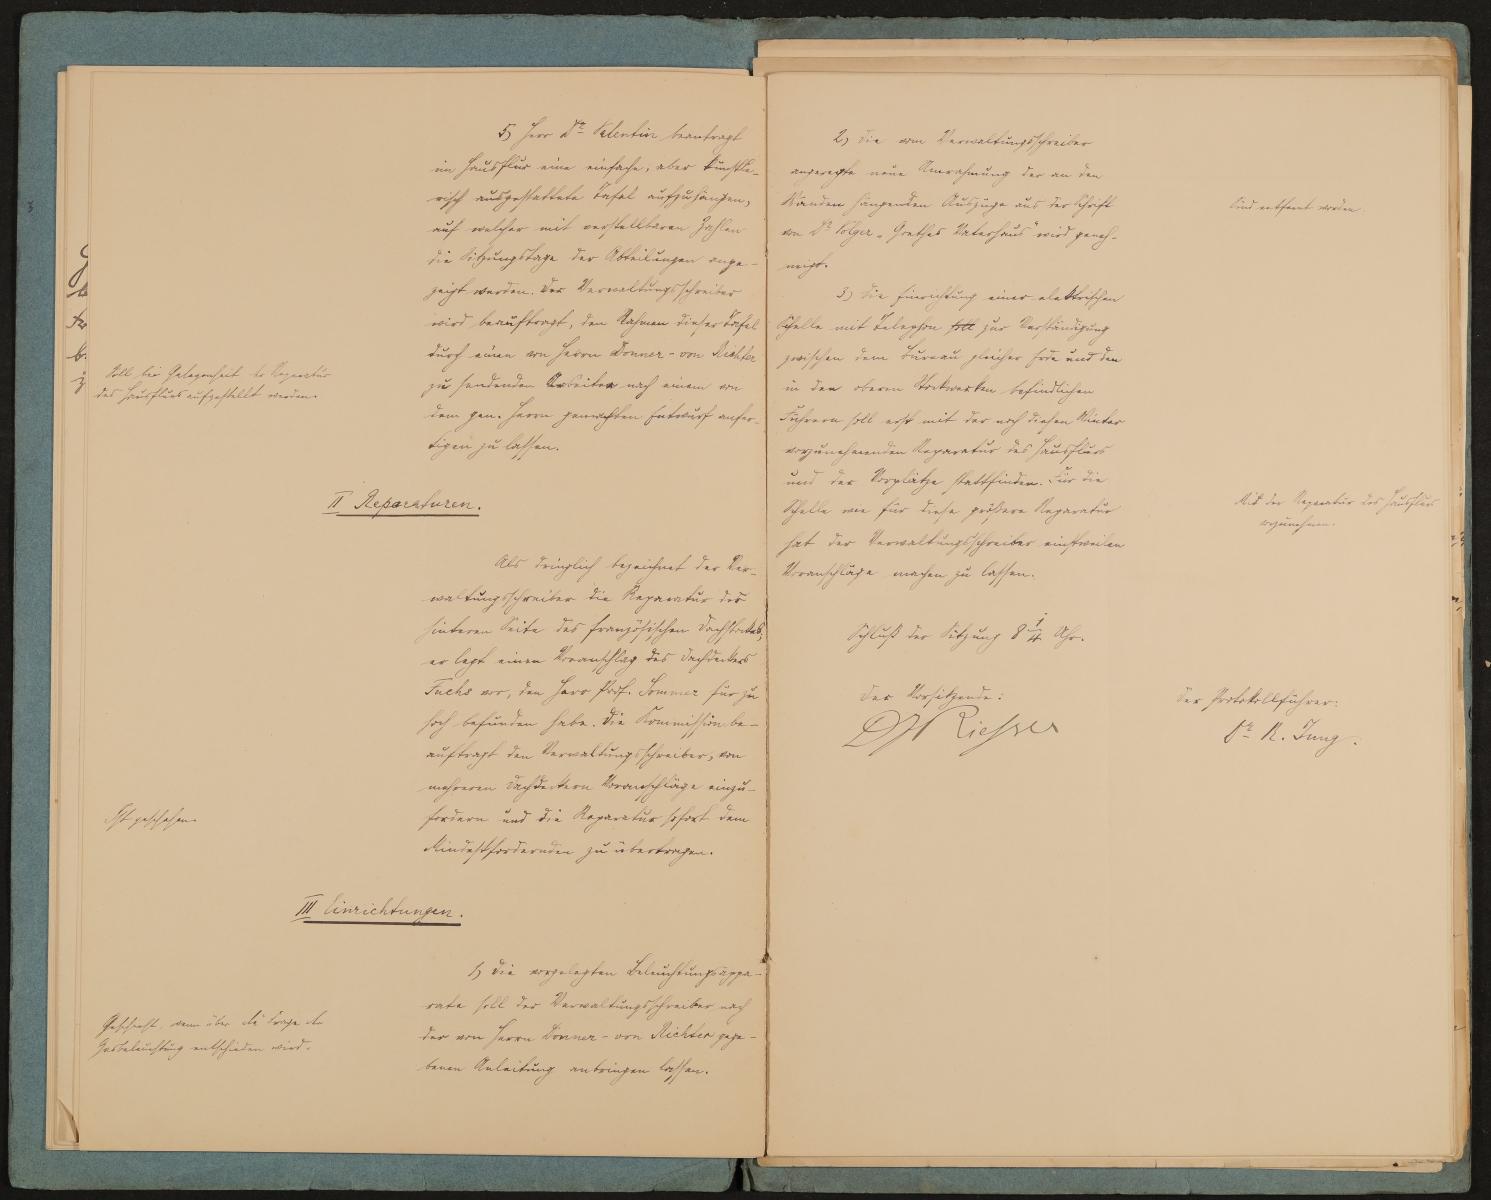 5) Herr Dr. Valentin beantragt
im Hausflur eine einfache, aber künstle-
risch ausgestattete Tafel aufzuhängen,
auf welcher mit verstellbaren Zahlen
die Sitzungstage der Abteilungen ange-
zeigt werden. Der Verwaltungsschreiber
wird beauftragt, den Rahmen dieser Tafel
durch einen von Herrn Donner-von Richter
zu sendenden Arbeiter nach einem von
dem gen. Herrn gemachten Entwurf anfer-
tigen zu lassen.
Soll bei Gelegenheit der Reparatur
des Hausflurs aufgestellt werden.
II Reparaturen.
Als dringlich bezeichnet der Ver-
waltungsschreiber die Reparatur der
hinteren Seite des französischen Dachstockes,
er legt einen Voranschlag des Dachdeckers
Fuchs vor, den Herr Prof. Sommer für zu
hoch befunden habe. Die Kommission be-
auftragt den Verwaltungsschreiber, von
mehreren Dachdeckern Voranschläge einzu-
fordern und die Reparatur sofort dem
Mindestfordernden zu übertragen.
Ist geschehen.
III Einrichtungen.
1) Die vorgelegten Beleuchtungsappa-
rate soll der Verwaltungsschreiber nach
der von Herrn Donner-von Richter gege-
benen Anleitung anbringen lassen.
Geschieht, wenn über die Frage der
Gasbeleuchtung entschieden wird.
2) Die vom Verwaltungsschreiber
angeregte neue Umrahmung der an den
Wänden hängenden Auszüge aus der Schrift
von Dr. Volger „Goethes Vaterhaus" wird geneh-
migt.
Sind entfernt worden.
3) Die Einrichtung einer elektrischen
Schelle mit Telephon soll zur Verständigung
zwischen dem Bureau gleicher Erde und den
in den oberen Stockwerken befindlichen
Führern soll erst mit der noch diesen Winter
vorzunehmenden Reparatur des Hausflurs
und der Vorplätze stattfinden. Für die
Schelle wie für diese größere Reparatur
hat der Verwaltungsschreiber einstweilen
Voranschläge machen zu lassen.
Mit der Reparatur des Hausflurs
vorzunehmen.
Schluß der Sitzung 8 1/4 Uhr.
Der Vorsitzende:
Dr Riesser
Der Protokollführer:
Dr. R. Jung.